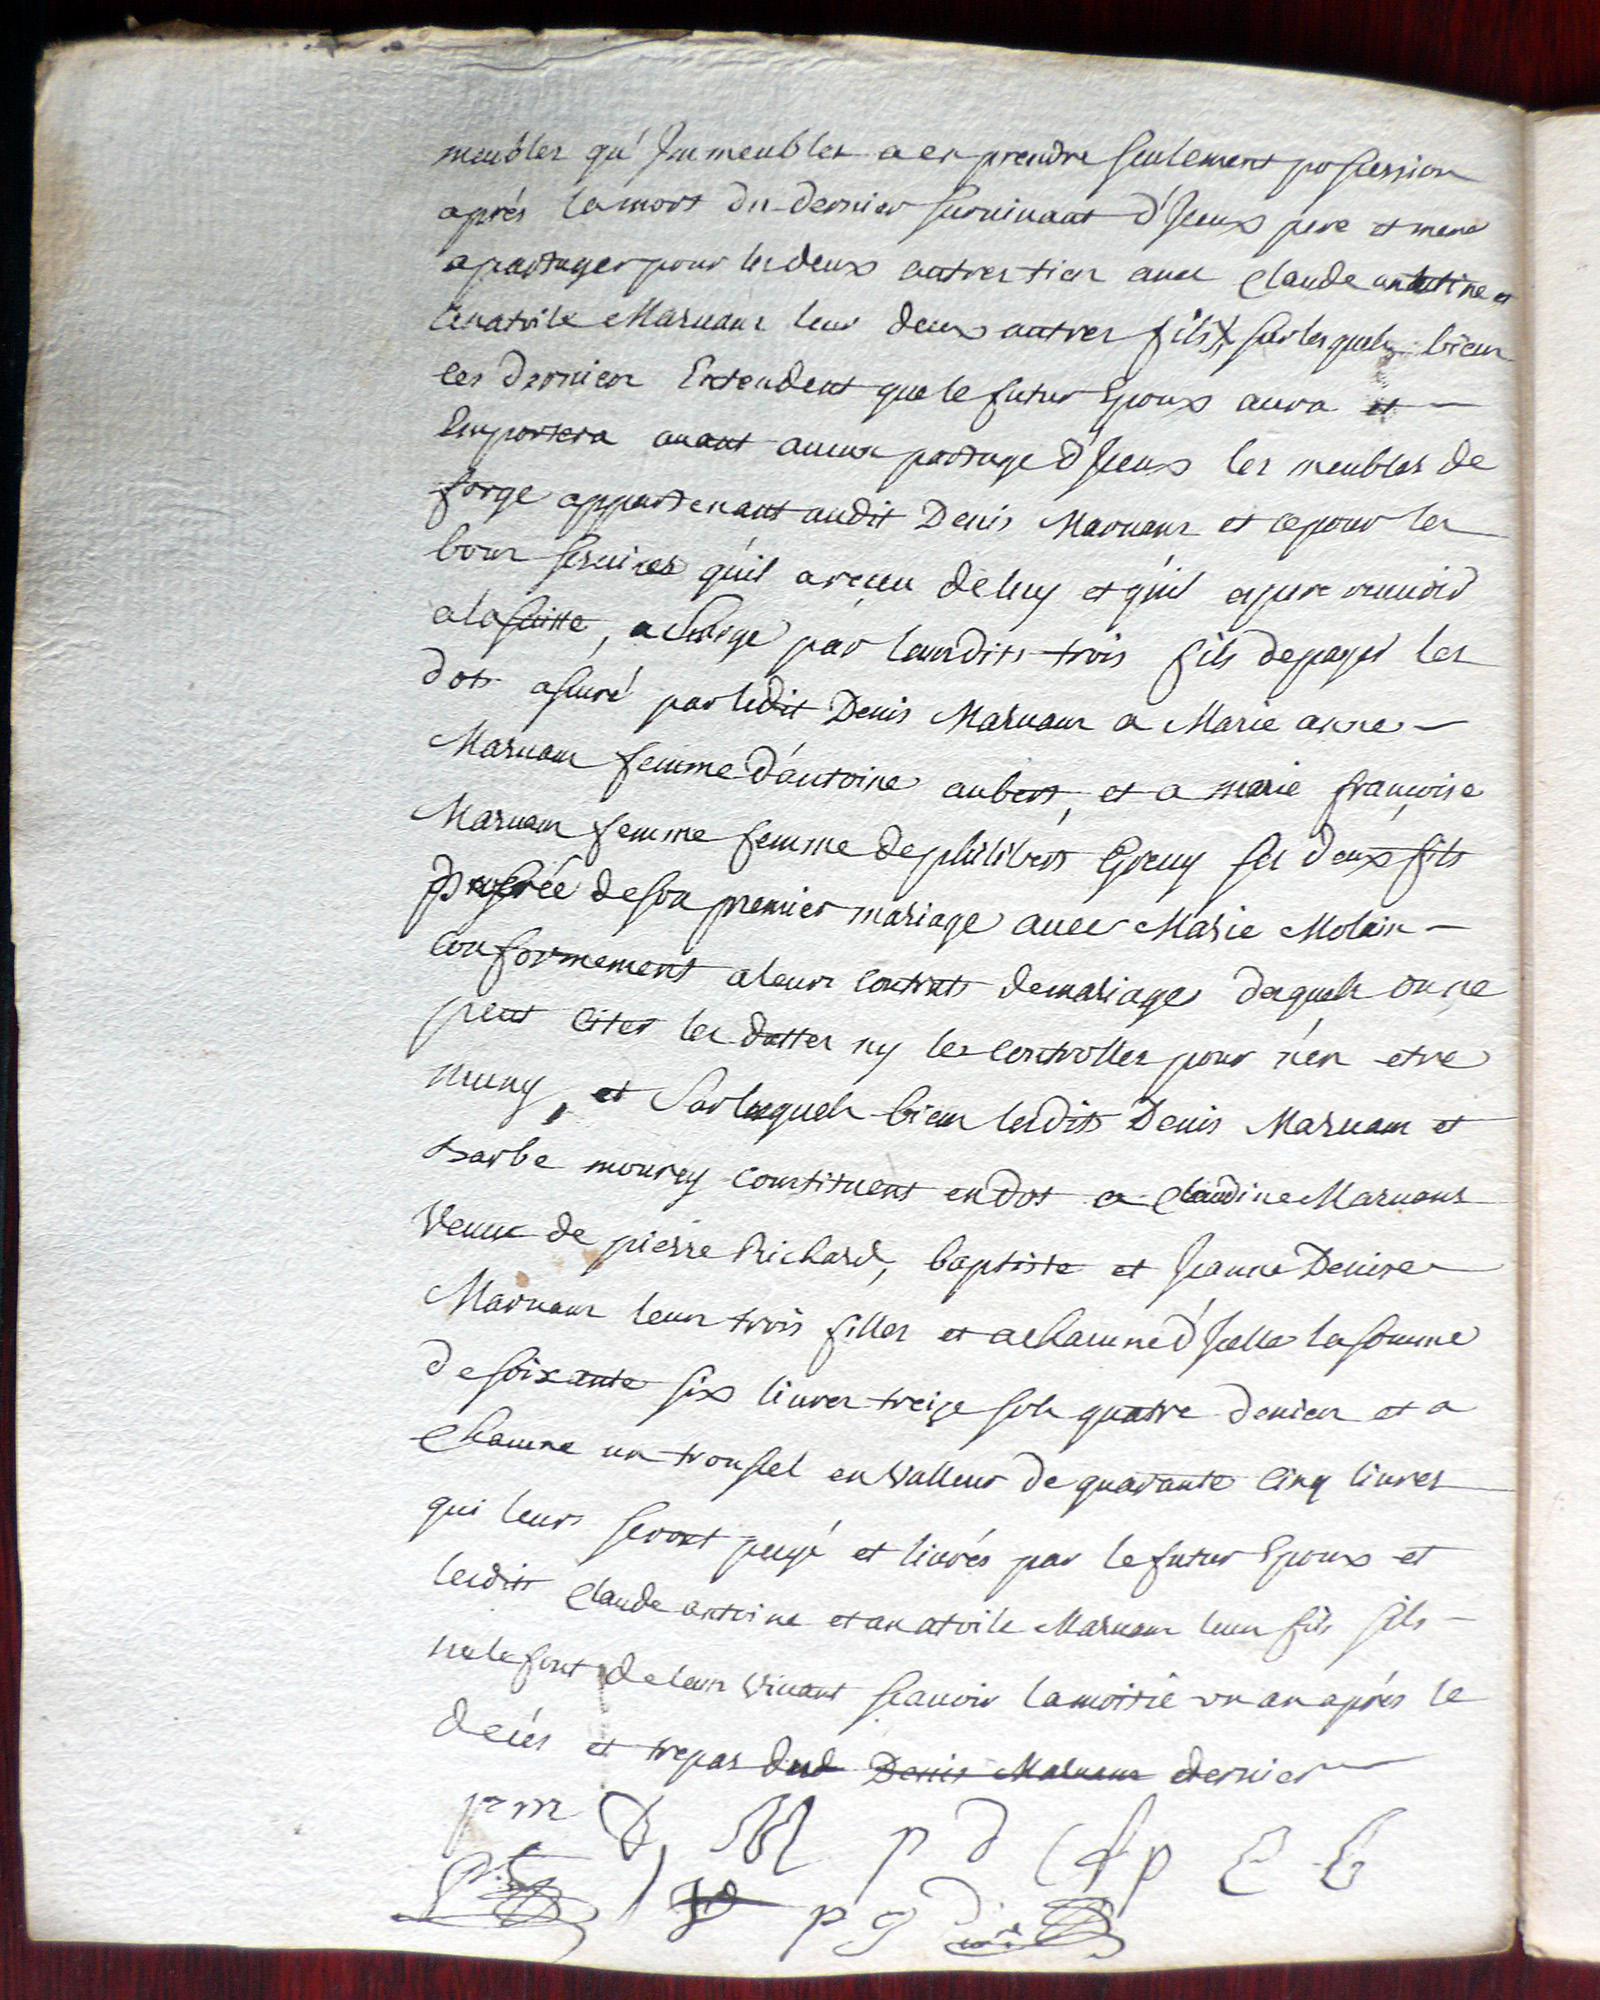 meubles qu'Immeubles a en prendre seulement possession
aprés la mort du dernier survivant d'Iceux pere et mere
a partager pour les deux autres tier avec Claude antoine et
anatoile Maruaux leur deux autres fils, sur lesquels bien
ces dernier Entendent que le futur Epoux aura et
Emportera avant aucun partage d'Iceux les meubles de
forge appartenant audit Denis Maruaux et ce pour les
bons services qu'il a reçeu de luy et qu'il espere recevoir
a la suitte, a Charge par lesdits trois fils de payer les
dots assuré par ledit Denis Maruaux a Marie anne
Maruaux femme d'antoine aubert, et a marie françoise
Maruaux femme femme de philibert Grevy ses deux fils
procréé de son premier mariage avec Marie Molain
conformement a leurs contrats de mariage desquels on ne
peut citer les datter ny les controlles pour n'en etre
muny, et sur lesquels bien lesdits Denis Maruaux et
Barbe mourey constituent en dot a Claudine Maruaux
Veuve de pierre Richard, baptiste et Jeanne Denise
Maruaux leurs trois filles et a chacune d'Icelle la somme
de soixante six livres treize sols quatre denier et a
Chacune un troussel en valleur de quarante cinq livres
qui leurs seront payé et livrés par le futur Epoux et
lesdits Claude antoine et anatoile Maruaux leurs fils sils
ne le font de leurs vivant scavoir la moitié un an aprés le
decés et trepas dud Denis Maruaux dernier
p m D M p d C f p E B
p g d